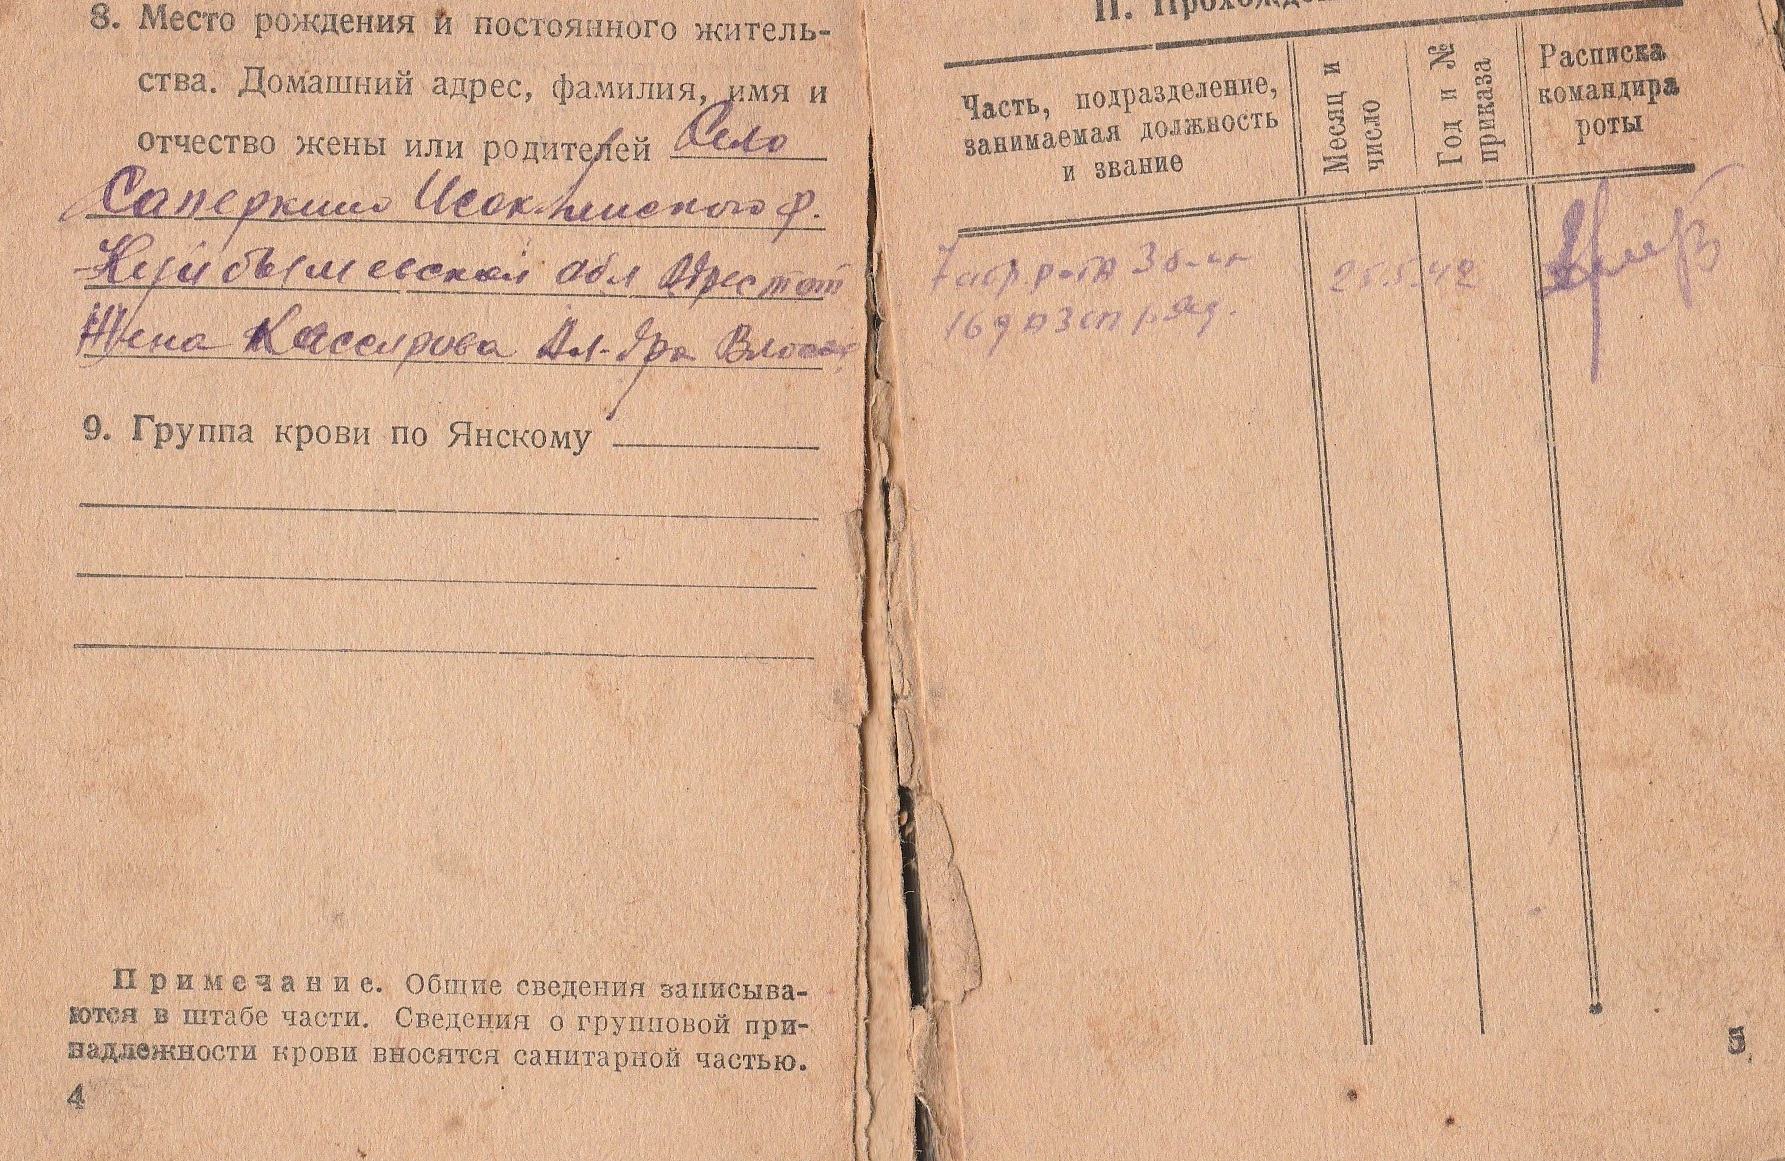 8. Место рождения и постоянного житель-
ства. Домашний адрес, фамилия, имя и
отчество жены или родителей Село
Саперкино Исаклинского р.
Куйбышевская обл Адрес тот
Жена
9. Группа крови по Янскому
Примечание. Общие сведения записыва-
ются в штабе части. Сведения о групповой при-
надлежности крови вносятся санитарной частью.
4
II.
Часть, подразделение,
занимаемая должность
и звание
Месяц и
число
Год и №
приказа
Расписка
командира
роты
25.5.42
5